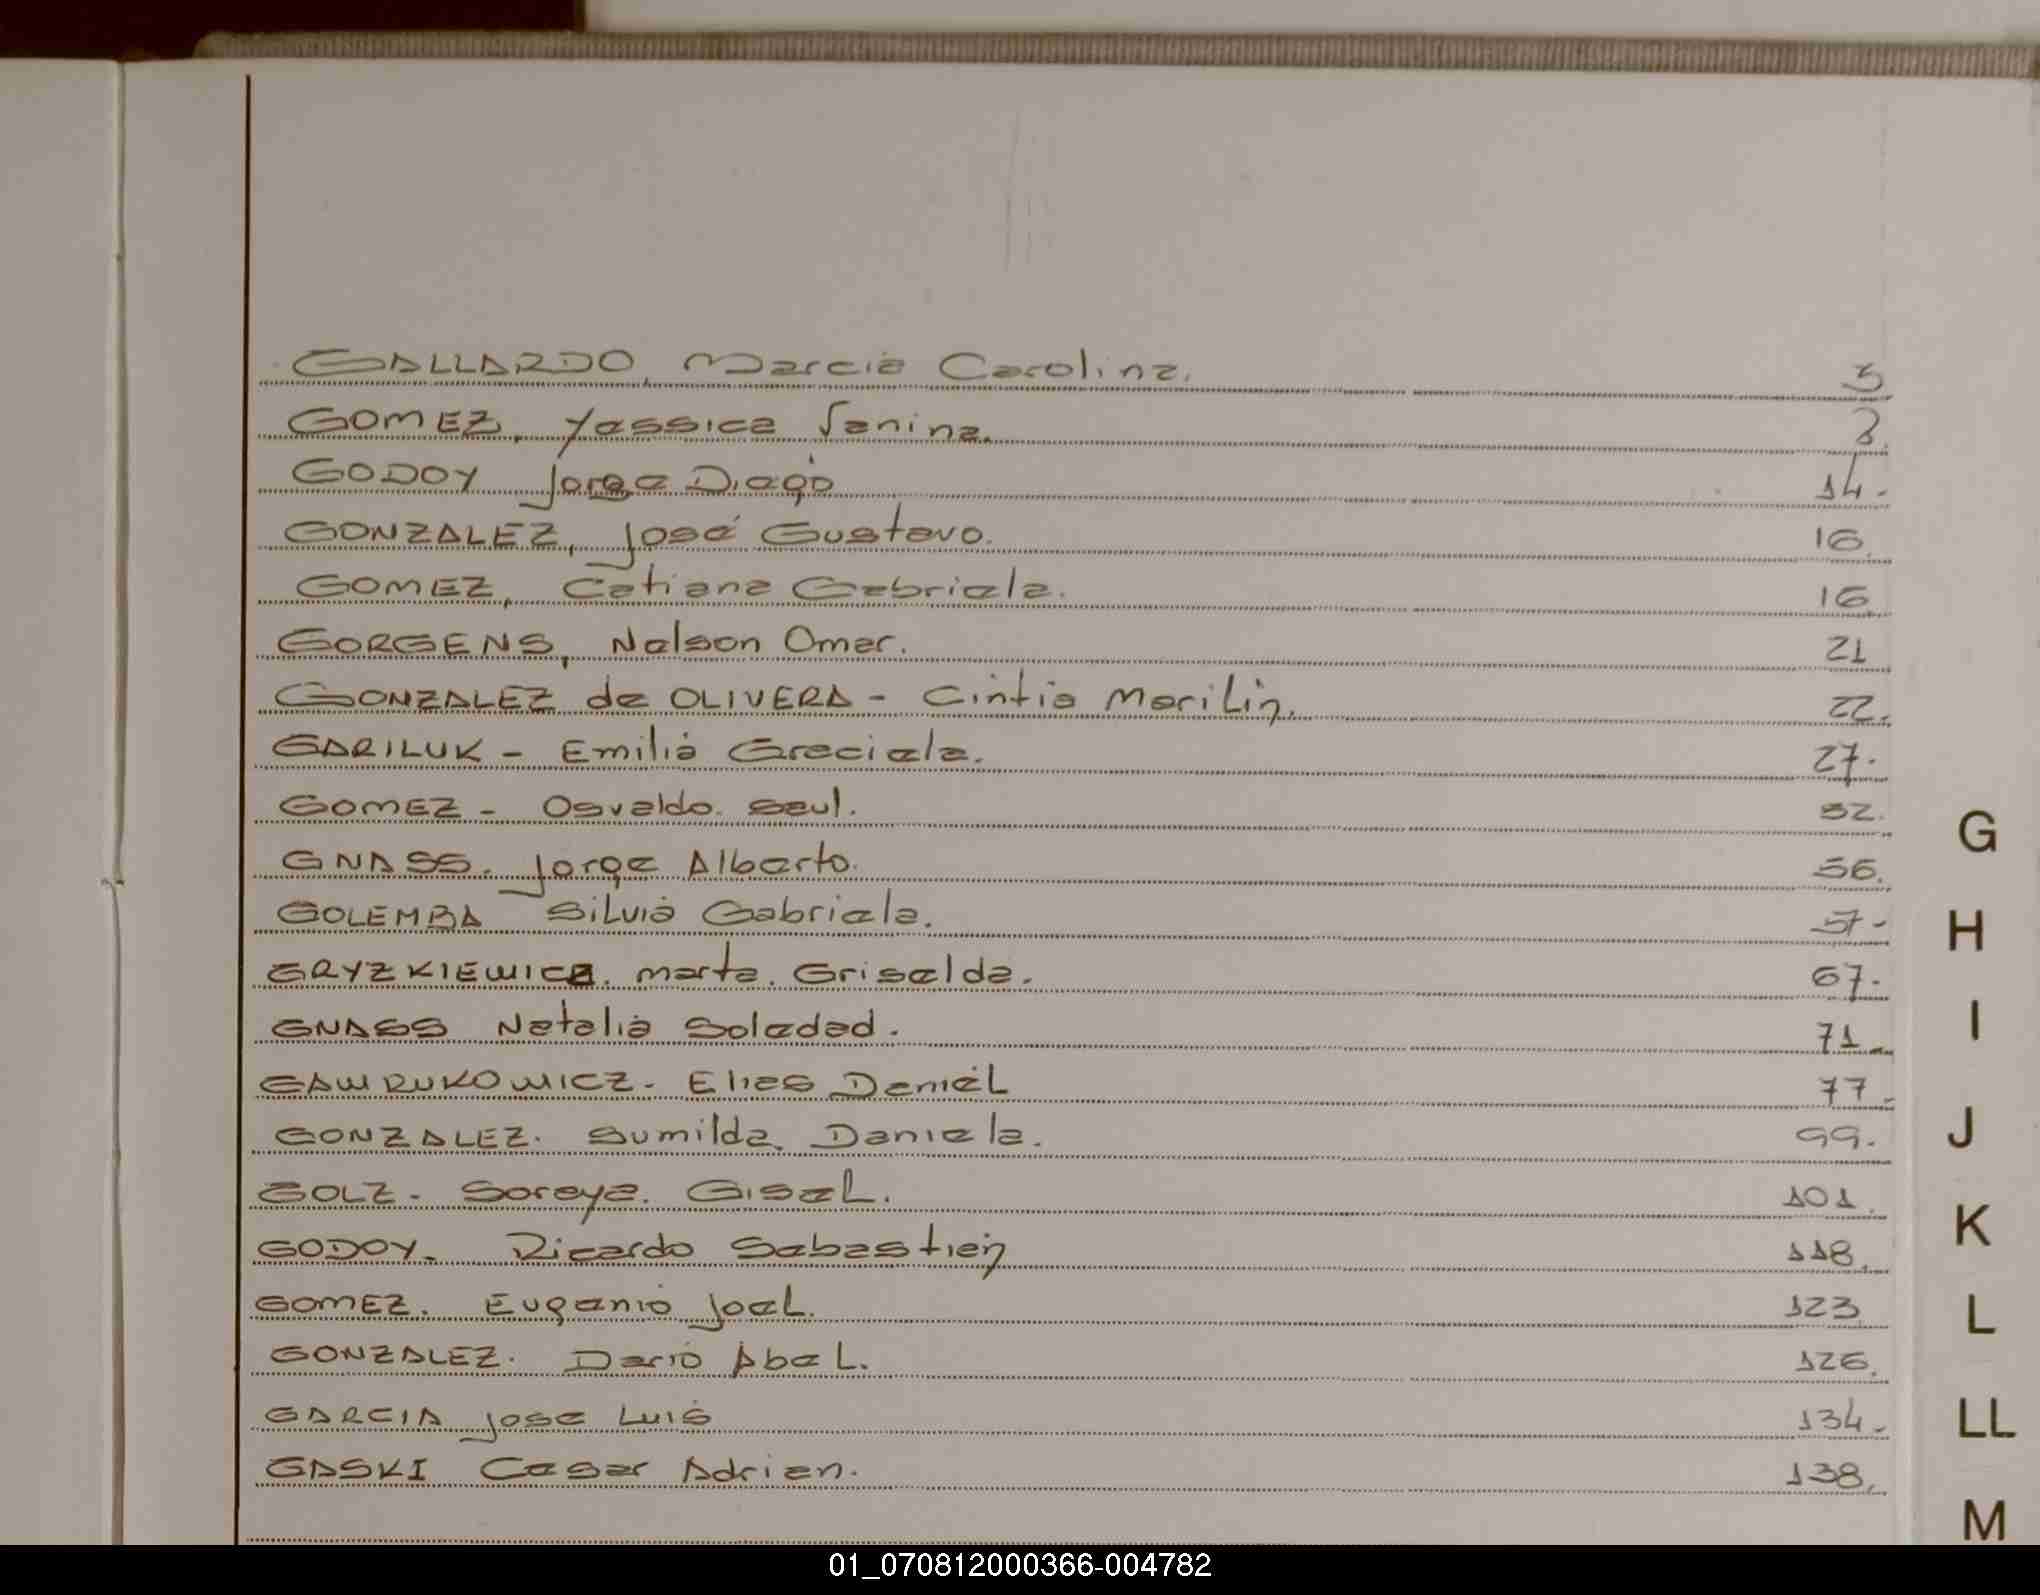 GALLARDO, Marcia Carolina. 3
GOMEZ, Yessica Janina. 8.
GODOY Jorge Diego 14.
GONZALEZ, José Gustavo. 16.
GOMEZ, Catiana Gabriela. 16
GORGENS, Nelson Omar. 21
GONZALEZ de OLIVERA - Cintia Marilin. 22.
GARILUK - Emilia Graciela. 27.
GOMEZ - Osvaldo. Saul. 32.
GNASS. Jorge Alberto. 56.
GOLEMBA Silvia Gabriela. 57-
GRYZKIEWICZ. Marta. Griselda. 67.
GNASS Natalia Soledad. 71.
GAWRUKOWICZ. Elias Daniel 77.
GONZALEZ. Sumilda. Daniela. 99.
GOLZ. Soraya. Gisel. 101.
GODOY. Ricardo Sebastian 118.
GOMEZ. Eugenio Joel. 123.
GONZALEZ. Dario Abel. 126.
GARCIA Jose Luis 134.
GASKI Cesar Adrian. 138.
G
H
I
J
K
L
LL
M
01_070812000366-004782